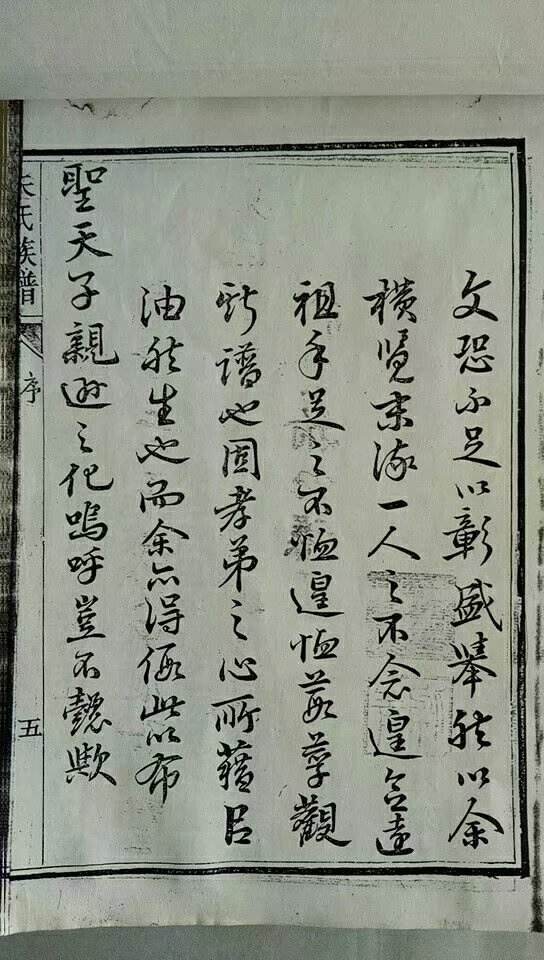 文恐不足以彰盛舉然以余
橫覽末流一人之不念遑念遠
祖手足之不恤遑恤葭莩觀
斯譜也固孝弟之心所藉以
油然生也而余亦得僃此以布
聖天子親遜之化嗚呼豈不懿歟
氏族譜
序
五